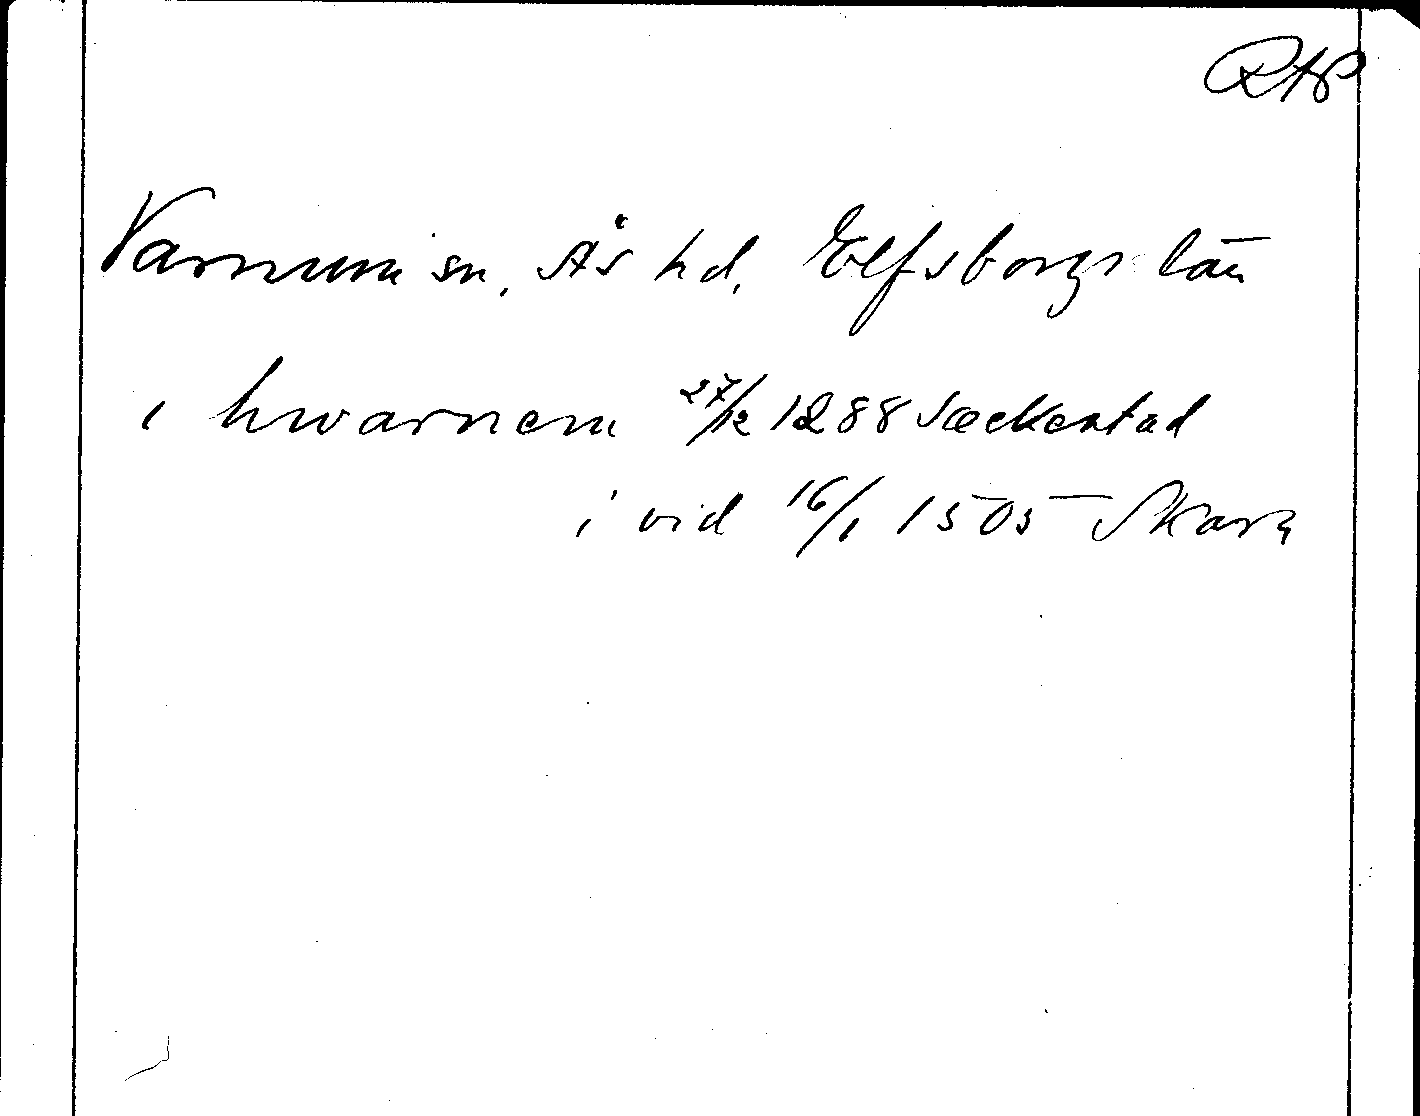 RAP
Varnum sn, Ås hd, Elfsborgs län
i hwarnem 27/12 1288 Sæckestad
i vid 16/1 1505 Skara